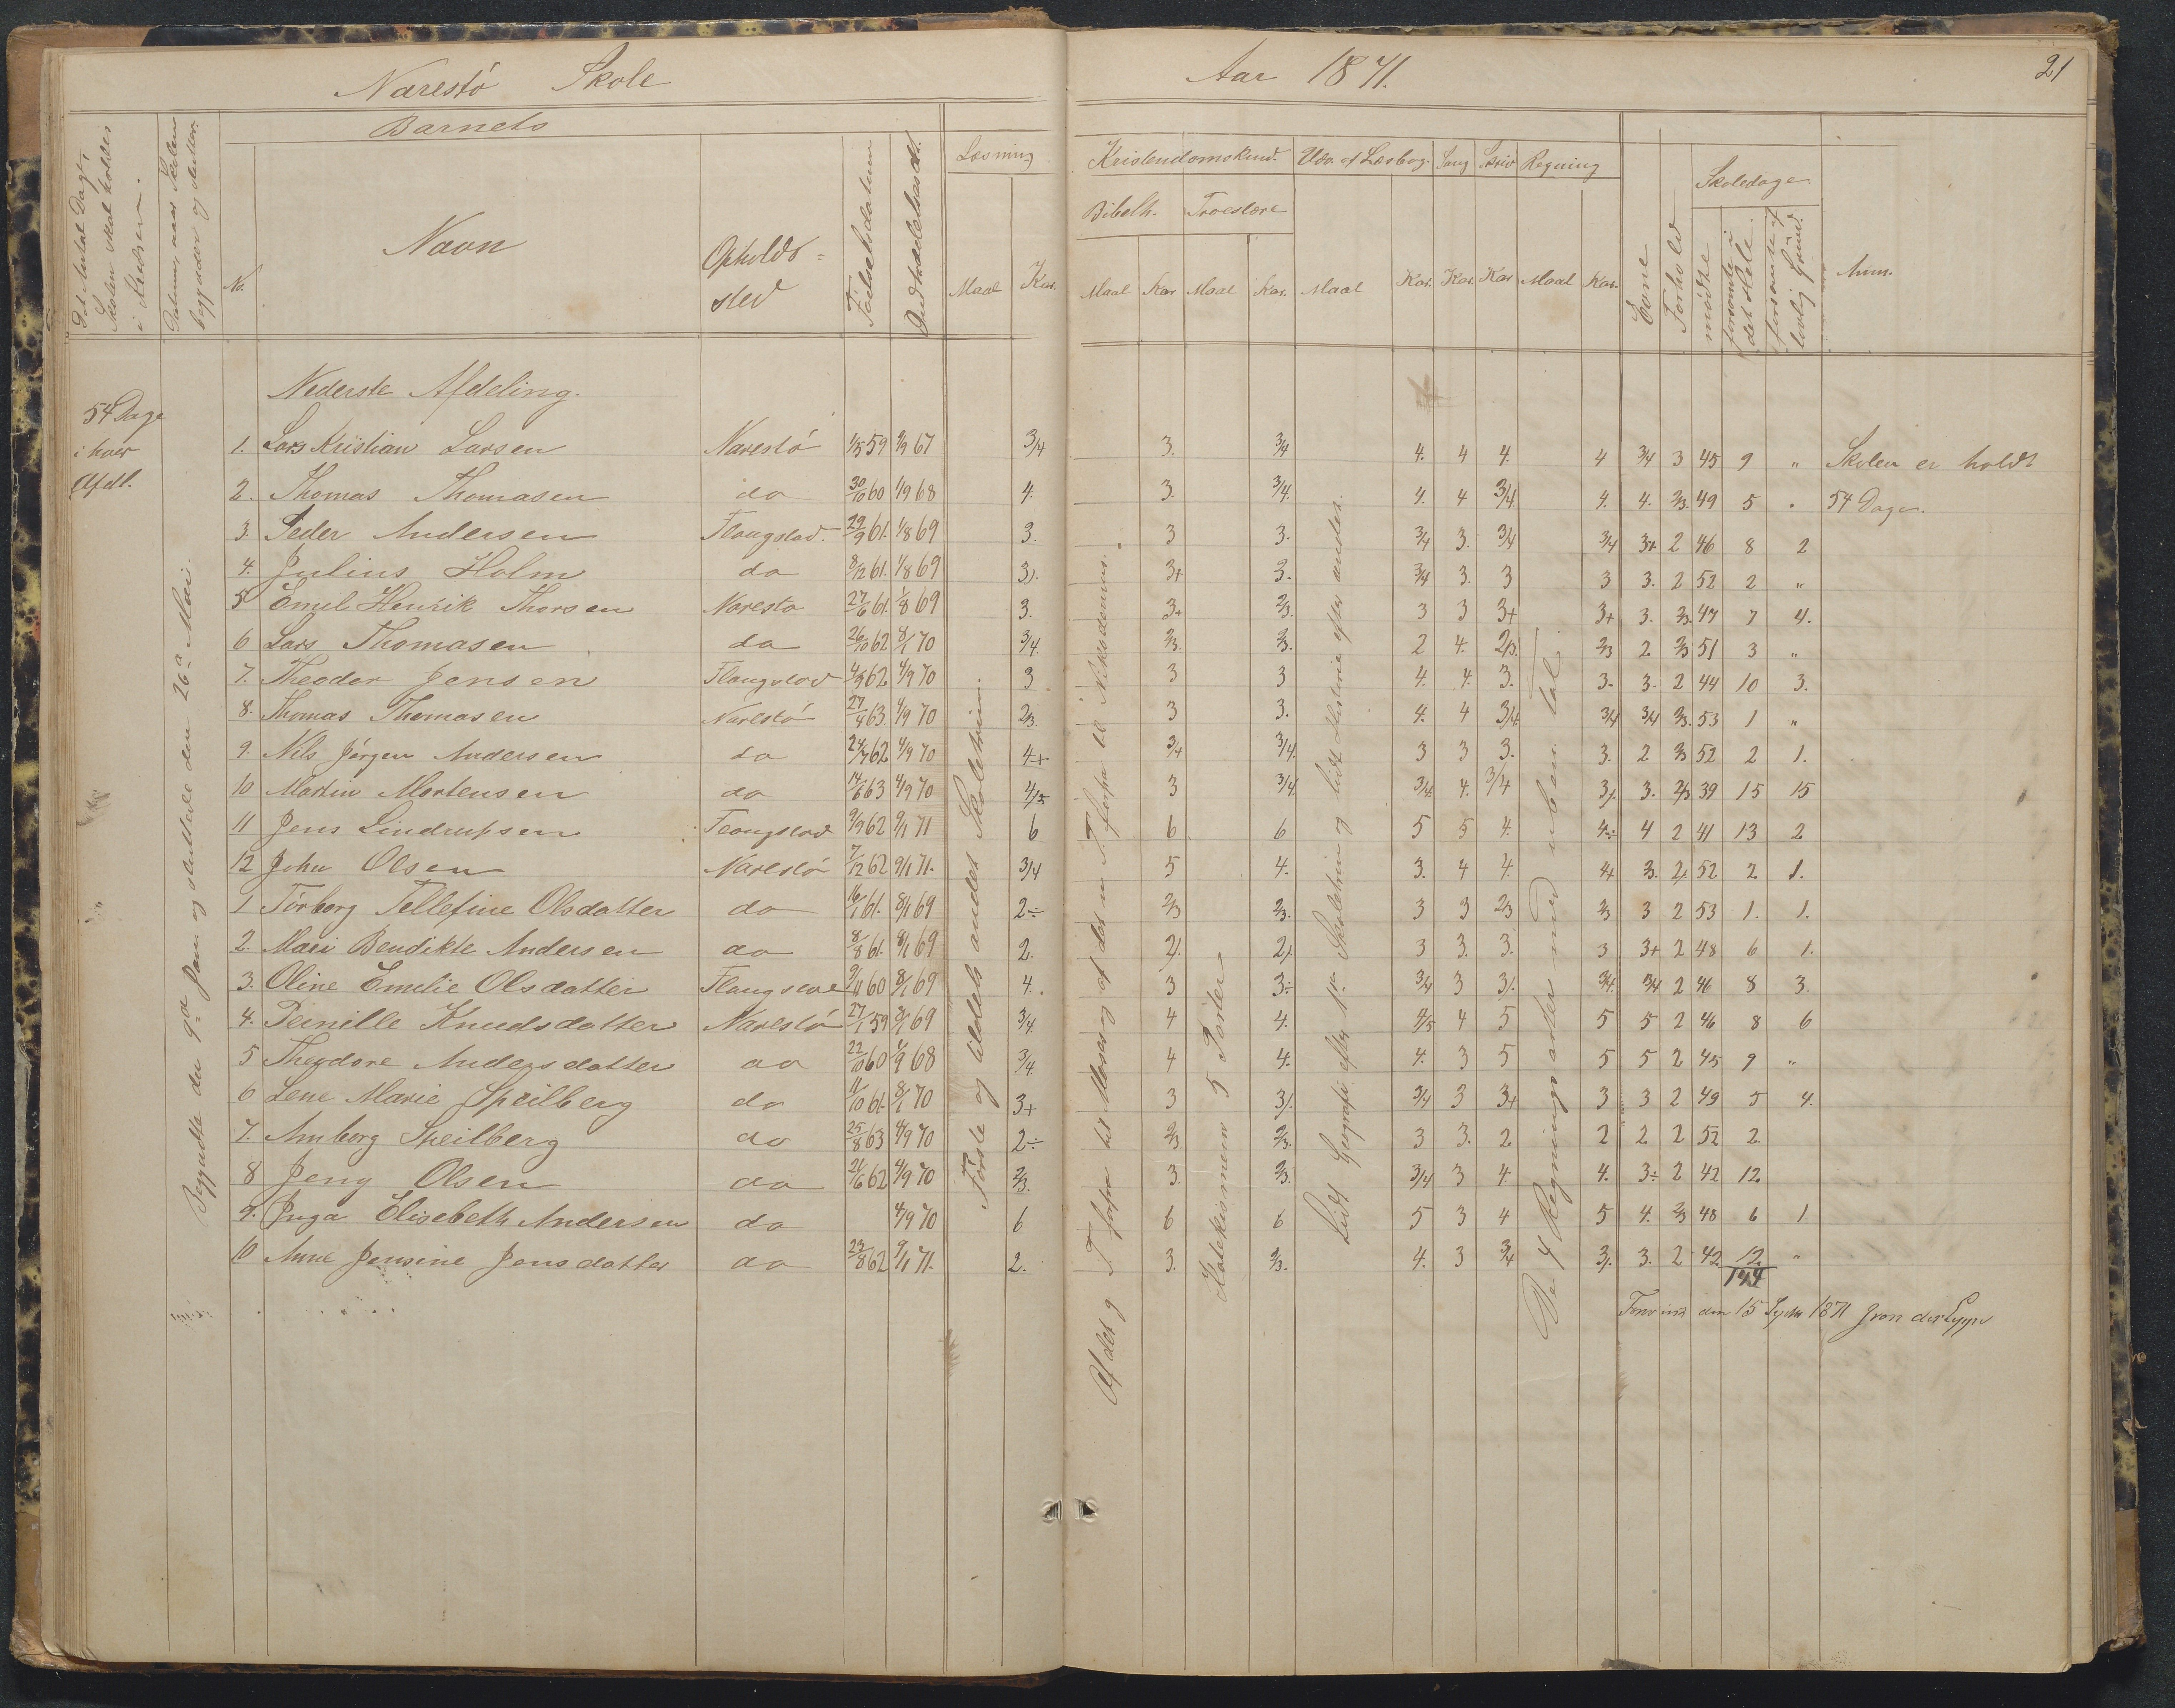 Narestö Skole
Aar 1871.
21
Barnets
Det Antal Dage, Skolen skal holdes i Kredsen.
Datum, naar Skolen begynder og slutter.
No.
Navn
Opholds-sted
Fødselsdatum
Indtrædelsesdt.
Læsning
Maal Kar.
Kristendomskund.
Bibelh. Troeslære
Maal Kar Maal Kar.
Udv. af Læsebog.
Maal Kar.
Sang Kar.
Skriv Kar
Regning
Maal Kar.
Evne
Forhold
Skoledage
mødte
forsømte i det Hele
forsømte af lovlig Grund.
Anm.
Nederste Afdeling.
54 Dage
i hver
Afdl.
Begyndte den 9de Jan. og sluttede den 26de Mai.
1. Lars Kristian Larsen Narestö 59 67 3/4 3. 3/4 4. 4 4. 4 3/4 3 45 9 " Skolen er holdt
2. Thomas Thomasen do 30/10 60 1/9 68 4. 3. 3/4. 4. 4 3/4 4. 4. 2/3. 49 5 " 54 Dage.
3. Peder Andersen Flangstad. 29/9 61. 1/8 69 3. 3 3. 3/4 3. 3/4 3/4 3+ 2 46 8 2
4. Julius Holm do 8/12 61. 1/8 69 3. 3+ 3. 3/4 3. 3 3 3. 2 52 2 "
5 Emil Henrik Thorsen Naresto 27/6 61. 1/8 69 3. 3+ 2/3. 3 3 3+ 3+ 3. 2/3. 47 7 4.
6 Lars Thomasen do 26/10 62 8/1 70 3/4. 2/3. 2/3. 2 4. 2/3. 2/3 2 2/3 51 3 "
7. Theodor Jensen Flangstad 62 4/9 70 3 3 3 4. 4. 3. 3. 3. 2 44 10 3.
8. Thomas Thomasen Narestö 27/4 63. 4/9 70 2/3. 3 3. 4. 4 3/4 3/4 3/4 2/3. 53 1 "
9. Nils Jörgen Andersen do 24/7 62 4/9 70 4+ 3/4 3/4. 3 3 3. 3. 2 2/3 52 2 1.
10 Martin Mortensen do 14/6 63 4/9 70 4/5 3 3/4. 3/4. 4. 3/4 3. 3. 2/3 39 15 15
11 Jens Lindrupsen Flangstad 9/9 62 9/1 71 6 6 6 5 5 4. 4÷ 4 2 41 13 2
12 John Olsen Narestö 7/12 62 9/1 71. 3/4 5 4. 3. 4 4. 4 3. 2. 52 2 1.
1 Törborg Tellefine Olsdatter do 16/1 61. 8/1 69 2÷ 2/3 2/3. 3 3 2/3 2/3 3 2 53 1. 1.
2. Mari Bendikte Andersen do 8/8 61. 8/1 69 2. 2. 2. 3 3. 3. 3 3+ 2 48 6 1.
3. Oline Emelie Olsdatter Flangstad 9/11 60 8/1 69 4. 3 3÷ 3/4 3 3. 3/4. 3/4 2 46 8 3.
4. Pernille Knudsdatter Narestö 27/1 59 8/1 69 3/4. 4 4. 4/5 4 5 5 5 2 46 8 6
5 Theodore Andersdatter do 22/10 60 1/9 68 3/4. 4 4. 4. 3 5 5 5 2 45 9 "
6 Lene Marie Speilberg do 11/10 61. 8/1 70 3+ 3 3. 3/4 3 3+ 3 3 2 49 5 4.
7. Amborg Speilberg do 25/8 63 4/9 70 2÷ 2/3 2/3. 3 3. 2 2 2 2 52 2
8 Jeny Olsen do 21/6 62 4/9 70 2/3. 3. 2/3. 3/4 3 4. 4. 3÷ 2 42 12
9. Inga Elisebeth Andersen do 4/9 70 6 6 6 5 3 4 5 4. 2/3 48 6 1
10 Anne Jensine Jensdatter do 23/8 62 9/1 71. 2. 3. 2/3. 4. 3 3/4 3. 3. 2 42 12 "
144
Første og tildels andet Skoletrin.
Af det g T forfra til Moses og af det n T. forfra til Nikodemus.
Katekismen 5 Parter
Lidt Geografi efter 1ste Skoletrin og lidt Historie efter andet.
De 4 Regningsarter med uben. Tal.
den 15 1871